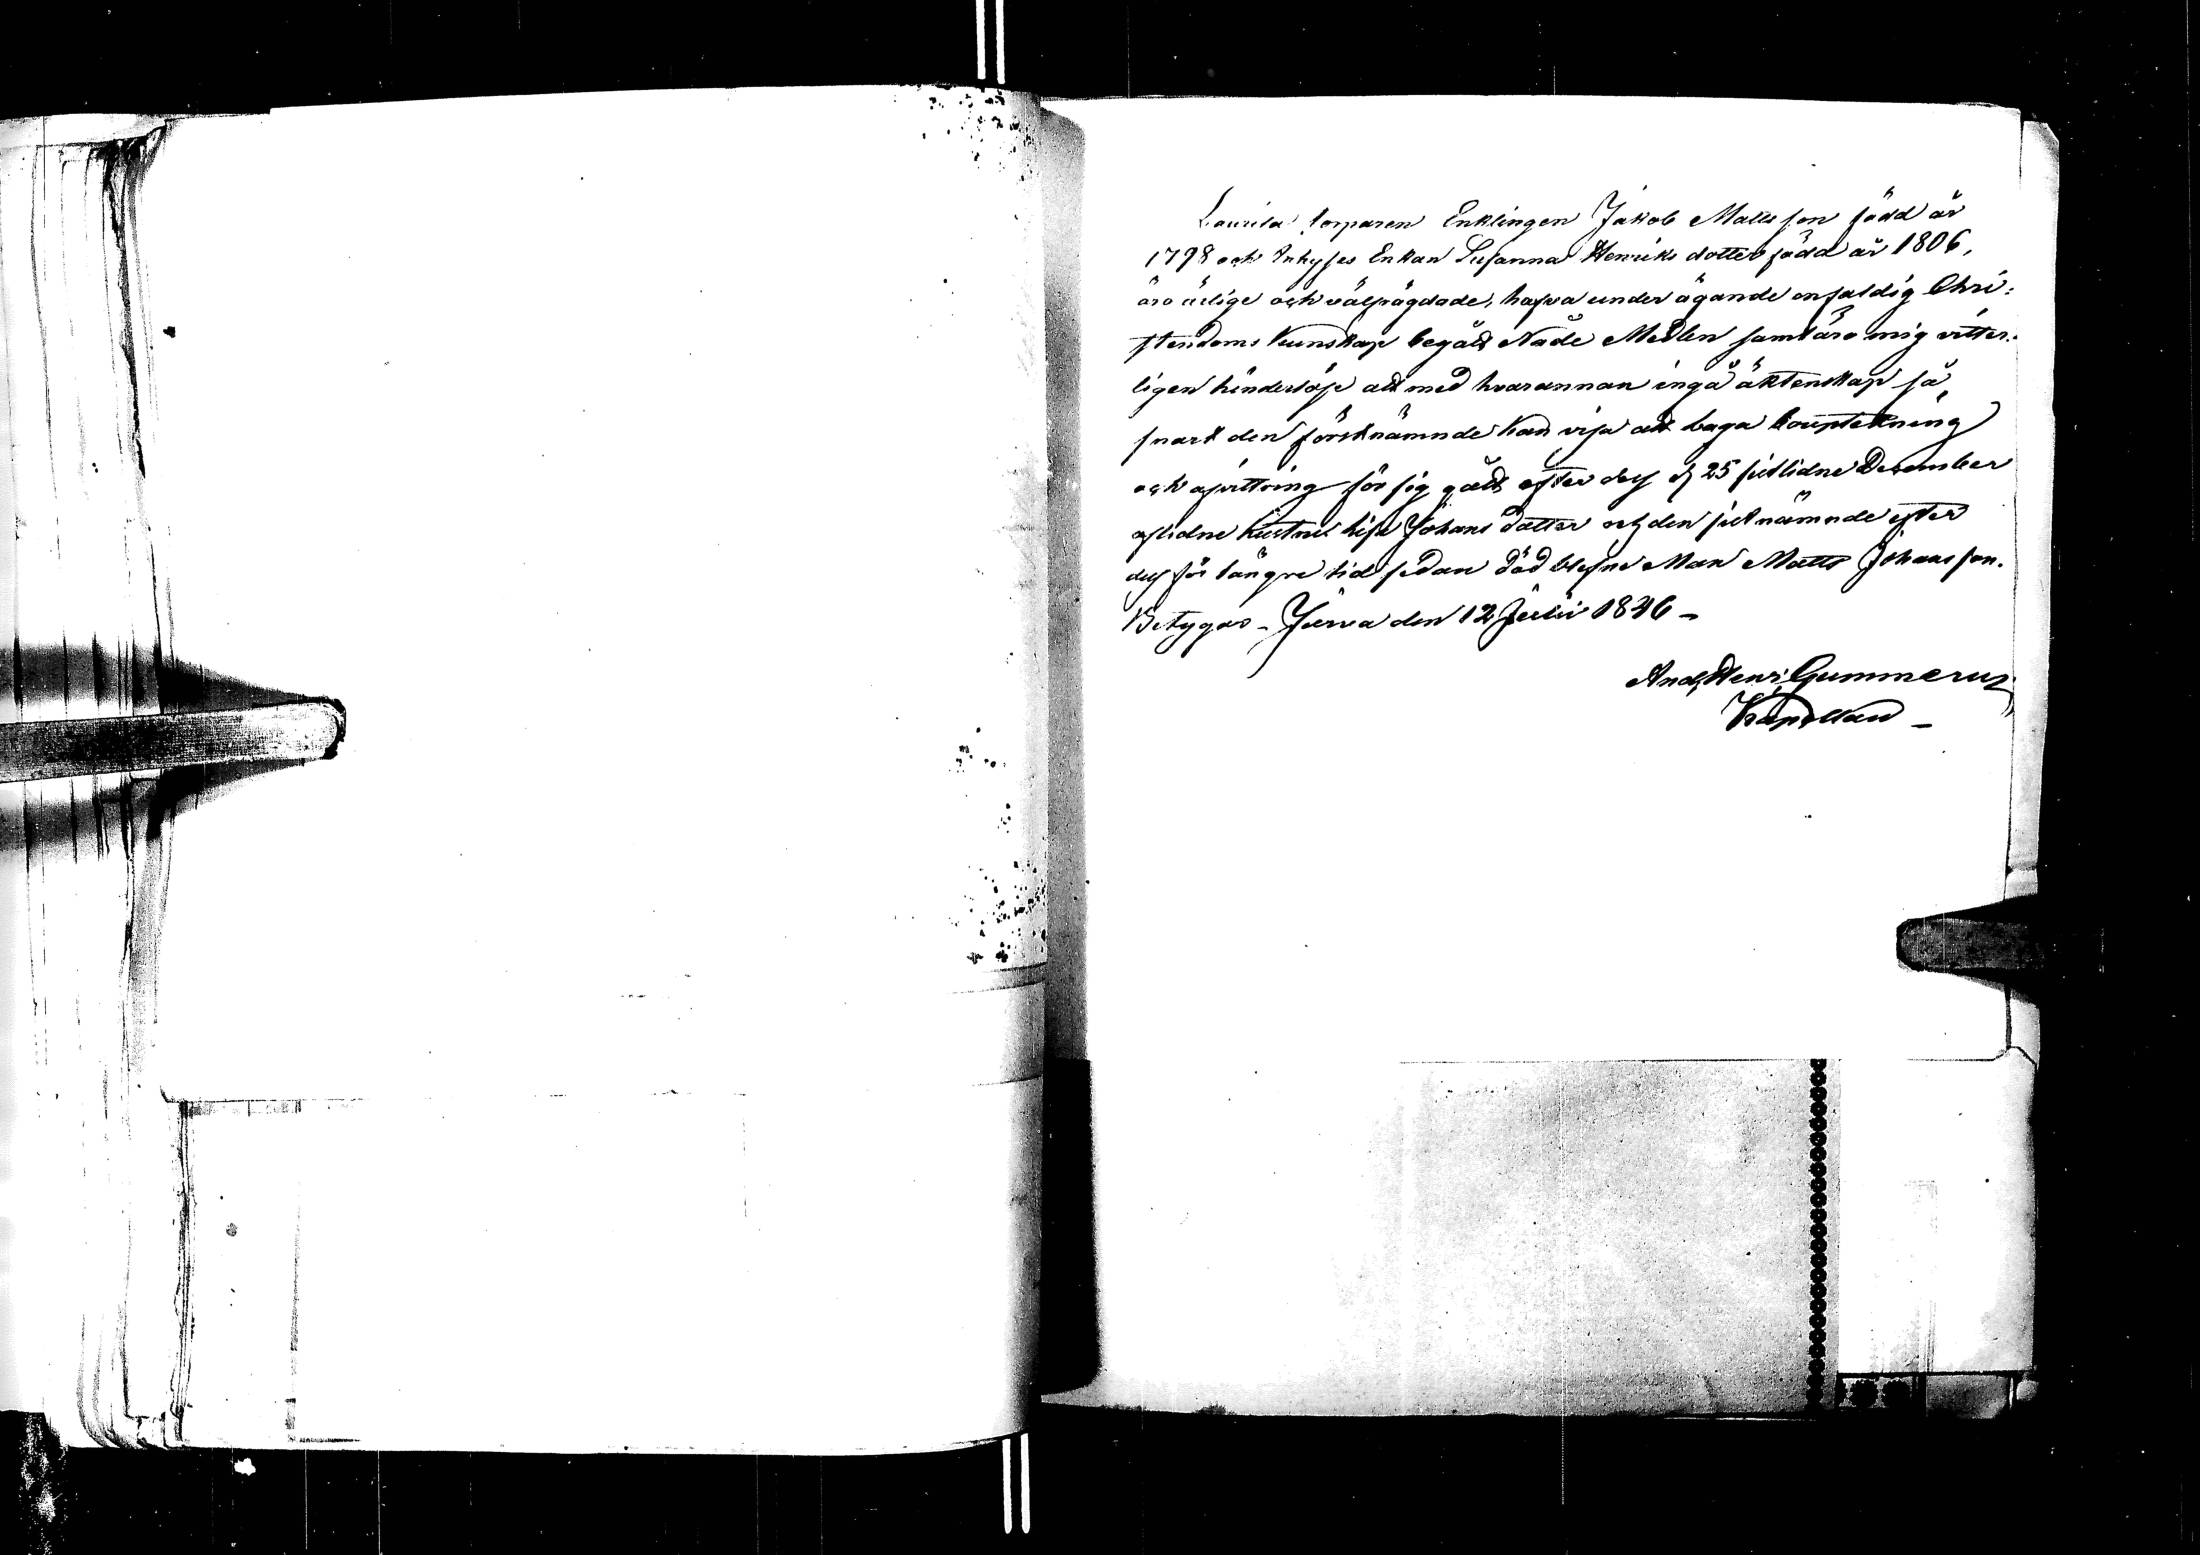 Laurila torparen Enklingen Jakob Matts son född år
1798 och Inhyses Enkan Susanna Henriks dotter född år 1806,
äro ärlige och välfrägdade, hafva under ägande enfaldig Chri-
stendoms kunskap begått Nåde Medlen samt äro mig vitter-
ligen hinderlöse att med hvarannan ingå äktenskap så
snart den förstnämnde kan visa att laga bouptekning
och afvittring för sig gått efter dess d. 25 sistlidne December
aflidne hustru Lisa Johans dotter och den sistnämnde efter
dess för längre tid sedan död blefne Man Matts Johansson.
Betygas – Jurva den 12 Julii 1846 –
And. Henr. Gummerus
Kapellan –